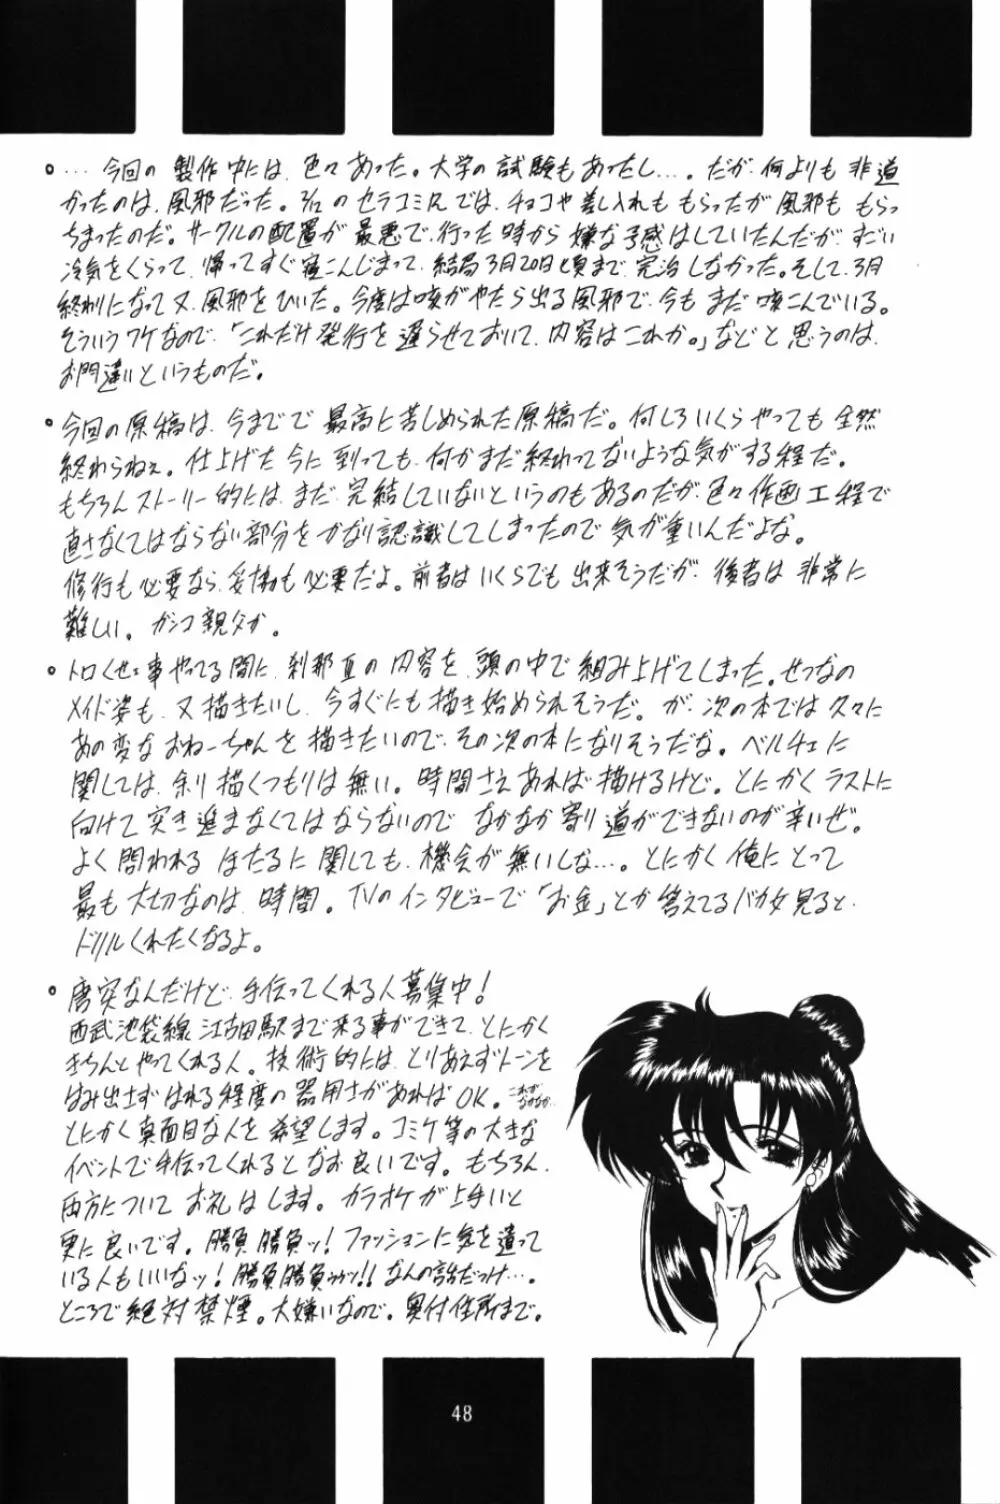 ・…今回の製作中には、色々あった。大学の試験もあったし…。だが、何よりも非道
かったのは、風邪だった。3/12のセラコミRでは、チョコや差し入れももらったが風邪ももらっ
ちまったのだ。サークルの配置が最悪で、行った時から嫌な予感はしていたんだが、すごい
冷気をくらって、帰ってすぐ寝こんじまって、結局3月20日頃まで、完治しなかった。そして、3月
終わりになって又、風邪をひいた。今度は咳がやたら出る風邪で、今もまだ咳こんでいる。
そういうワケなので、「これだけ発行を遅らせておいて、内容はこれか。」などと思うのは、
お門違いというものだ。
・今回の原稿は、今までで最高に苦しめられた原稿だ。何しろいくらやっても全然
終わらねぇ。仕上げた今に到っても、何かまだ終わってないような気がする程だ。
もちろんストーリー的には、まだ完結していないというのもあるのだが、色々作画工程で
直さなくてはならない部分をかなり認識してしまったので気が重いんだよな。
修行も必要なら、妥協も必要だよ。前者はいくらでも出来そうだが、後者は非常に
難しい。ガンコ親父か。
・トロくせェ事やってる間に、刹那Ⅱの内容を、頭の中で組み上げてしまった。せつなの
メイド姿も、又描きたいし、今すぐにも描き始められそうだ。が、次の本では久々に
あの変なおねーちゃんを描きたいので、その次の本になりそうだな。ベルチェに
関しては、余り描くつもりは無い。時間さえあれば描けるけど。とにかくラストに
向けて突き進まなくてはならないのでなかなか寄り道ができないのが辛いぜ。
よく問われるほたるに関しても、機会が無いしな…。とにかく俺にとって
最も大切なのは、時間。TVのインタビューで「お金」とか答えてるバカ女見ると、
ドリルくれたくなるよ。
・唐突なんだけど、手伝ってくれる人募集中!
西武池袋線江古田駅まで来る事ができて、とにかく
きちんとやってくれる人。技術的には、とりあえずトーンを
はみ出さずはれる程度の器用さがあればOK。これがなかなか…
とにかく真面目な人を希望します。コミケ等の大きな
イベントで手伝ってくれるとなお良いです。もちろん、
両方についてお礼はします。カラオケが上手いと
更に良いです。勝負勝負ッ!ファッションに気を遣って
いる人もいいなッ!勝負勝負ゥゥッ!!なんの話だっけ…。
ところで絶対禁煙。大嫌いなので。奥付住所まで。
48